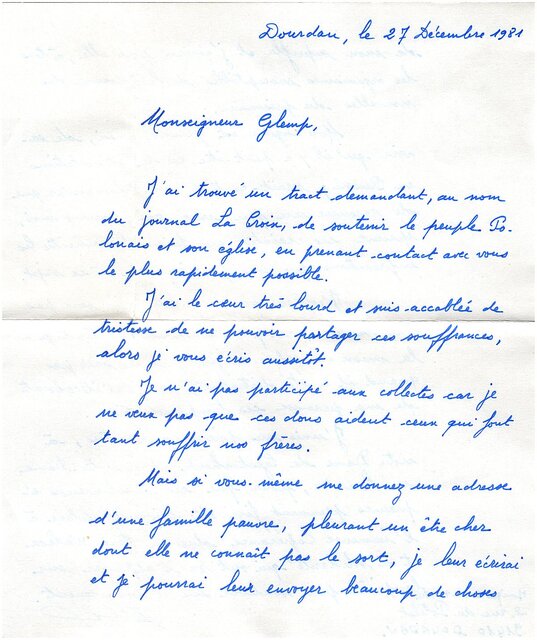 Dourdan, le 27 Décembre 1981
Monseigneur Glemp,
J'ai trouvé un tract demandant, au nom
du journal La Croix, de soutenir le peuple Po-
lonais et son église, en prenant contact avec vous
le plus rapidement possible.
J'ai le cœur très lourd et suis accablée de
tristesse de ne pouvoir partager ces souffrances,
alors je vous écris aussitôt.
Je n'ai pas participé aux collectes car je
ne veux pas que ces dons aident ceux qui font
tant souffrir nos frères.
Mais si vous-même me donnez une adresse
d'une famille pauvre, pleurant un être cher
dont elle ne connaît pas le sort, je leur écrirai
et je pourrai leur envoyer beaucoup de choses